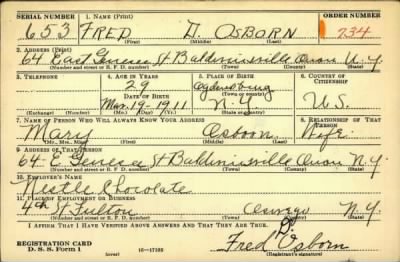 SERIAL NUMBER 1. NAME (Print) ORDER NUMBER
653 FRED D. OSBORN 734
(First) (Middle) (Last)
2. ADDRESS (Print)
64 East Genesee St Baldwinsville Onon N.Y.
(Number and street or R. F. D. number) (Town) (County) (State)
3. TELEPHONE 4. AGE IN YEARS 5. PLACE OF BIRTH 6. COUNTRY OF CITIZENSHIP
29 Ogdensburg
DATE OF BIRTH (Town or county)
Mar. 19-1911 N.Y. U.S.
(Exchange) (Number) (Mo.) (Day) (Yr.) (State or country)
7. NAME OF PERSON WHO WILL ALWAYS KNOW YOUR ADDRESS 8. RELATIONSHIP OF THAT PERSON
Mary Osborn Wife
(Mr., Mrs., Miss) (First) (Middle) (Last)
9. ADDRESS OF THAT PERSON
64 E Genesee St Baldwinsville Onon N.Y.
(Number and street or R. F. D. number) (Town) (County) (State)
10. EMPLOYER'S NAME
Nestle Chocolate
11. PLACE OF EMPLOYMENT OR BUSINESS
4th St Fulton Oswego N.Y.
(Number and street or R. F. D. number) (Town) (County) (State)
I AFFIRM THAT I HAVE VERIFIED ABOVE ANSWERS AND THAT THEY ARE TRUE.
D.
REGISTRATION CARD Fred Osborn
D. S. S. Form 1 (over) 16-17105 (Registrant's signature)